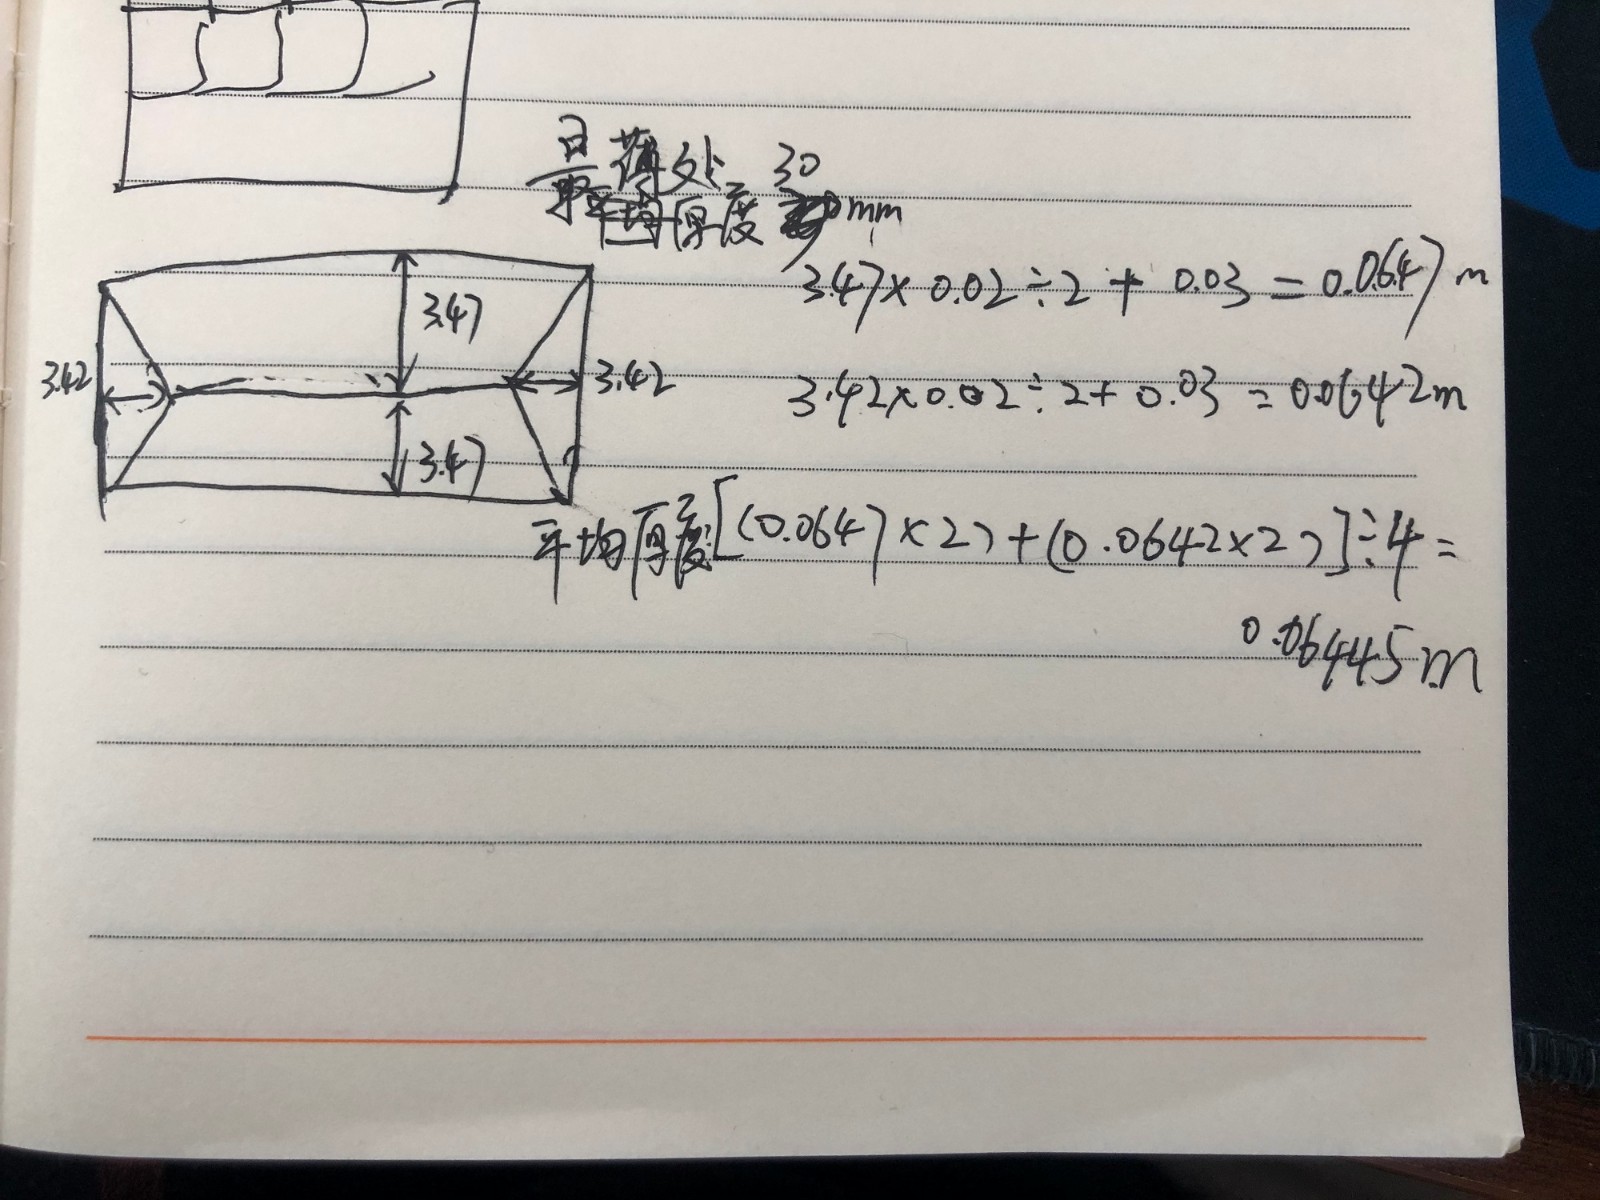 最薄处 30
平均厚度 mm
3.47×0.02÷2+0.03=0.0647m
3.47
3.42
3.42
3.42×0.02÷2+0.03=0.0642m
3.47
平均厚度:[(0.0647×2)+(0.0642×2)]÷4=
0.06445m